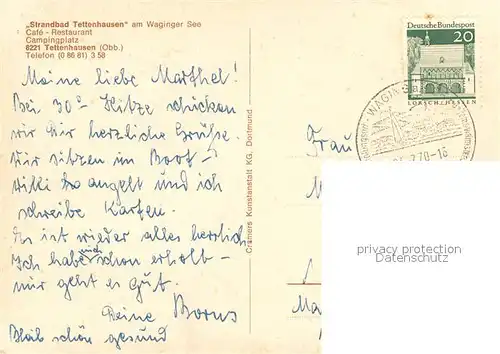 „Strandbad Tettenhausen" am Waginger See
Café - Restaurant
Campingplatz
8221 Tettenhausen (Obb.)
Telefon (0 86 81) 3 58
Meine liebe Marthel!
Bei 30° Hitze schicken
wir Dir herzliche Grüße.
Wir sitzen im Boot –
angelt und ich
schreibe Karten.
Es ist wieder alles herrlich
Ich habe mich schon erholt –
mir geht es gut.
Deine
Bleib schön gesund
Cramers Kunstanstalt KG, Dortmund
DEUTSCHE BUNDESPOST
20
LORSCH/HESSEN
WAGING
70-16
Frau
M
Ma
privacy protection
Datenschutz